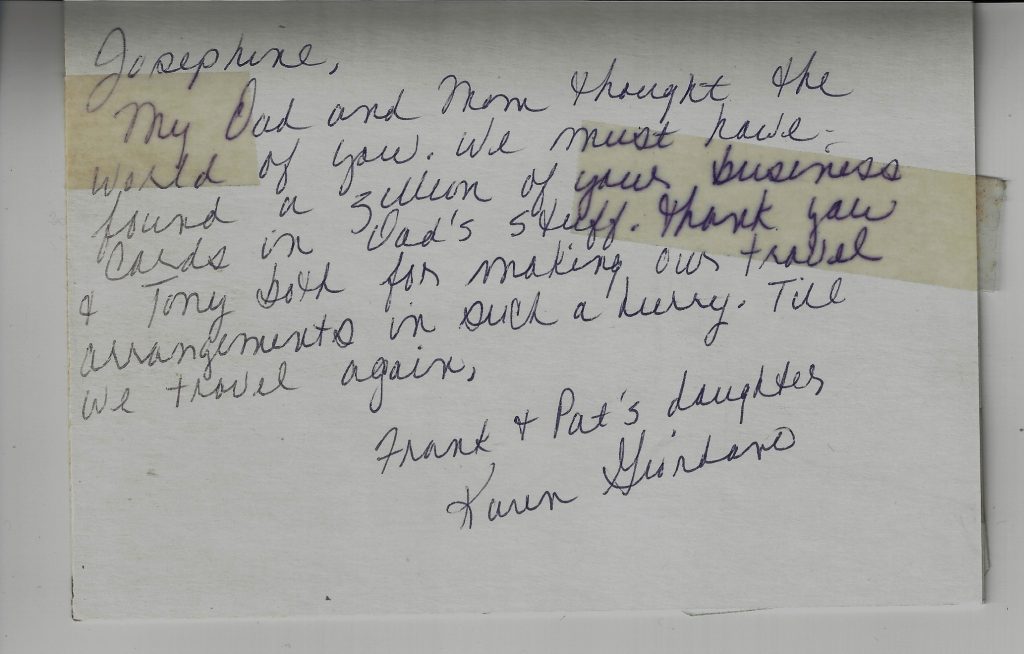 Josephine,
My Dad and Mom thought the
world of you. We must have
found a zillion of your business
cards in Dad's stuff. Thank you
& Tony both for making our travel
arrangements in such a hurry. Till
we travel again,
Frank & Pat's daughter
Karen Giordano